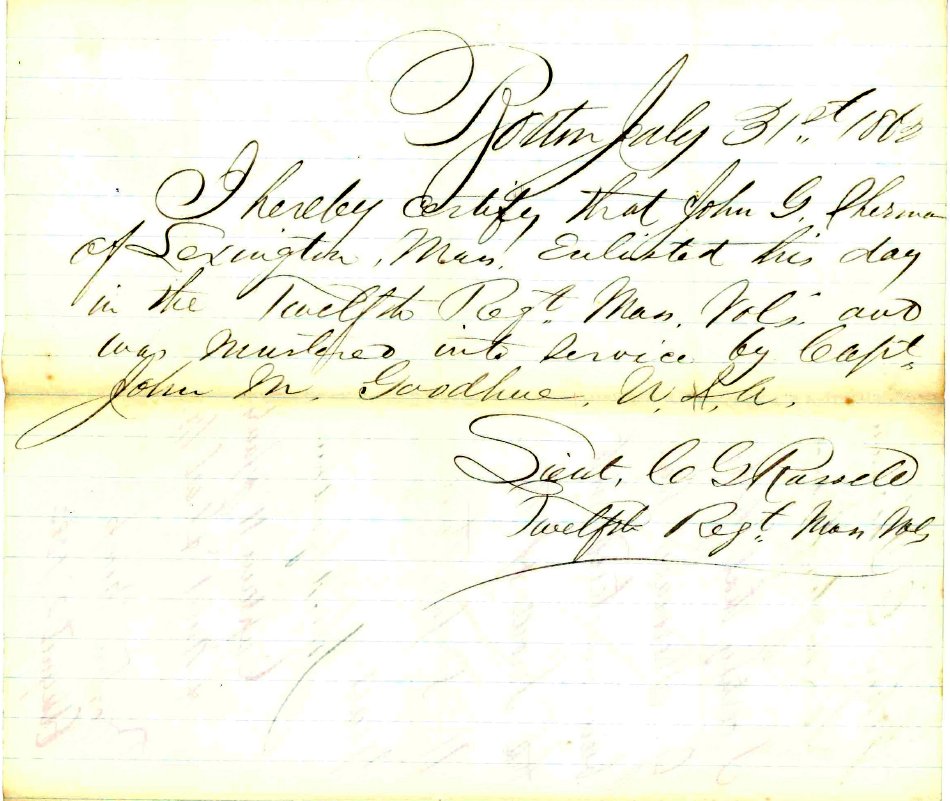 Boston July 31st 1862
I hereby certify that John G. Sherman
of Lexington, Mass. Enlisted this day
in the Twelfth Regt. Mass. Vols. and
was mustered into service by Capt.
John M. Goodhue, U.S.A.
Lieut. C G Russell
Twelfth Regt. Mass Vols